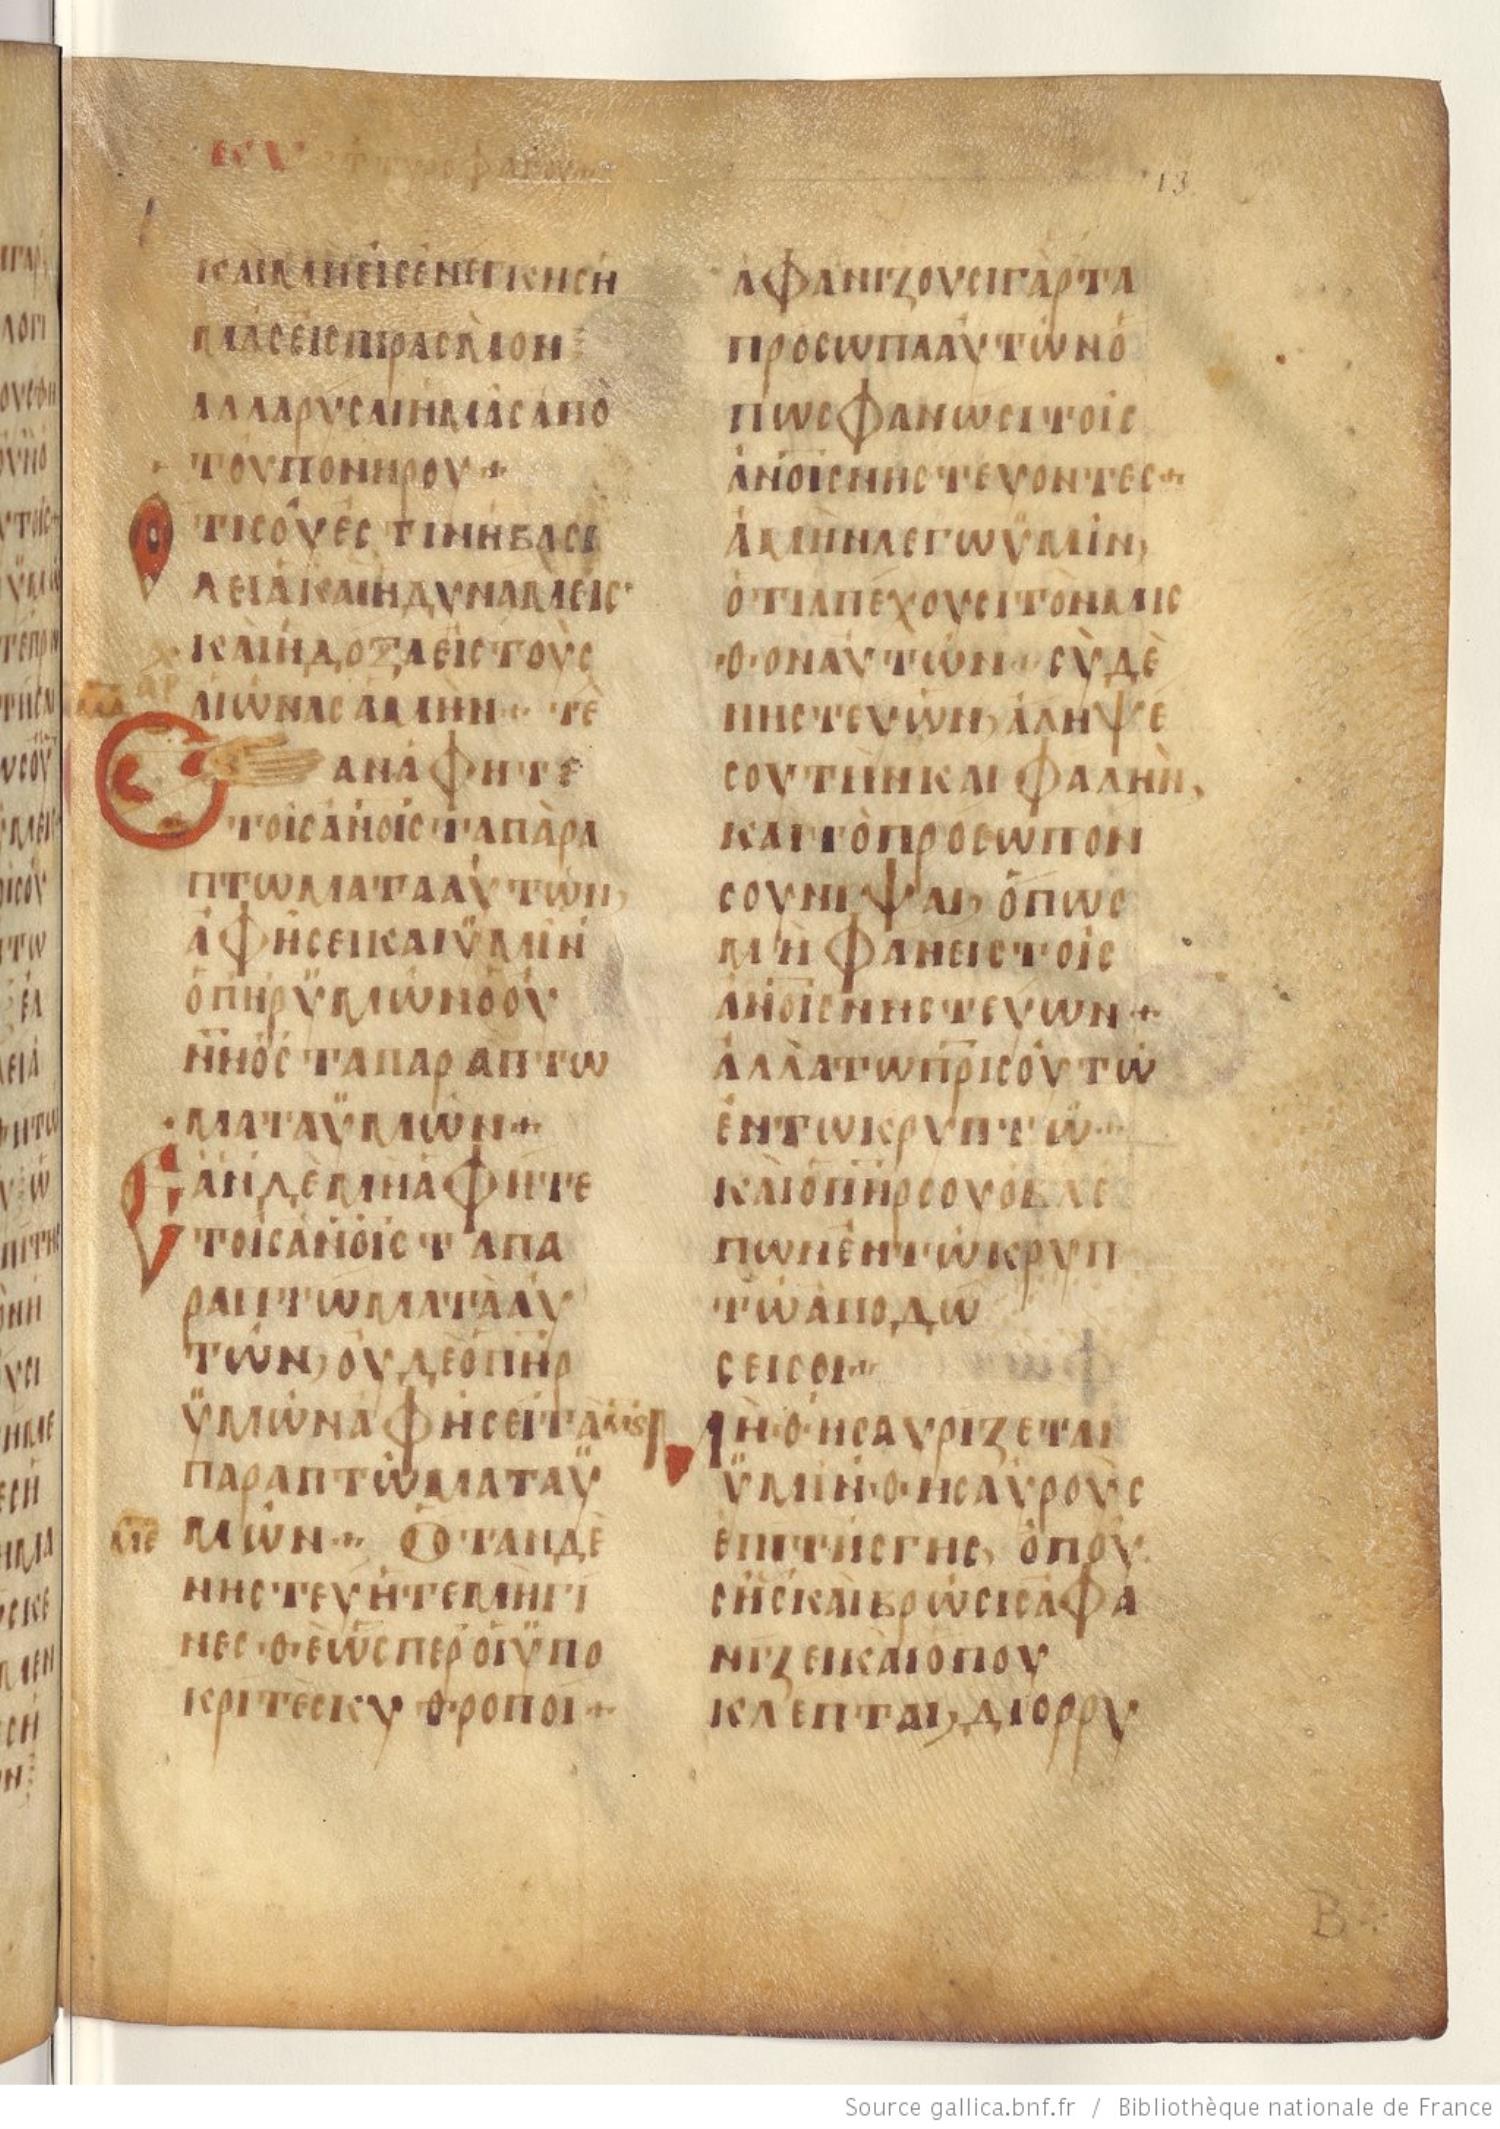 13
ΚΑΙΜΗΕΙCΕΝΕΓΚΗCΗ
ΜΑCΕΙCΠΙΡΑCΜΟΝ
ΑΛΛΑΡΥCΑΙΗΜΑCΑΠΟ
ΤΟΥΠΟΝΗΡΟΥ+
ΟΤΙCΟΥΕCΤΙΝΗΒΑCΙ
ΛΕΙΑΚΑΙΗΔΥΝΑΜΕΙC
ΚΑΙΗΔΟΞΑΕΙCΤΟΥC
ΑΙΩΝΑCΑΜΗΝ+ ΤΕ
ΕΑΝΑΦΗΤΕ
ΤΟΙCΑΝΟΙCΤΑΠΑΡΑ
ΠΤΩΜΑΤΑΑΥΤΩΝ,
ΑΦΗCΕΙΚΑΙΫΜΙΝ
ΟΠΗΡΫΜΩΝΟΟΥ
ΝΗΟCΤΑΠΑΡΑΠΤΩ
ΜΑΤΑΫΜΩΝ+
ΕΑΝΔΕΜΗΑΦΗΤΕ
ΤΟΙCΑΝΟΙCΤΑΠΑ
ΡΑΠΤΩΜΑΤΑΑΥ
ΤΩΝ,ΟΥΔΕΟΠΗΡ
ΫΜΩΝΑΦΗCΕΙΤΑ
ΠΑΡΑΠΤΩΜΑΤΑΫ
ΜΩΝ+ ΟΤΑΝΔΕ
ΝΗCΤΕΥΗΤΕΜΗΓΙ
ΝΕC·Θ·ΕΩCΠΕΡΟΙΫΠΟ
ΚΡΙΤΕCΚΥΘΡΟΠΟΙ+
ΑΦΑΝΙΖΟΥCΙΓΑΡΤΑ
ΠΡΟCΩΠΑΑΥΤΩΝΟ
ΠΩCΦΑΝΩCΙΤΟΙC
ΑΝΟΙCΝΗCΤΕΥΟΝΤΕC+
ΑΜΗΝΛΕΓΩΫΜΙΝ,
ΟΤΙΑΠΕΧΟΥCΙΤΟΝΜΙC
·Θ·ΟΝΑΥΤΩΝ+ CΥΔΕ
ΝΗCΤΕΥΩΝ,ΑΛΗΨΕ
CΟΥΤΗΝΚΑΙΦΑΛΗΝ,
ΚΑΙΤΟΠΡΟCΩΠΟΝ
CΟΥΝΙΨΑΙ, ΟΠΩC
ΜΗΦΑΝΕΙCΤΟΙC
ΑΝΟΙCΝΗCΤΕΥΩΝ+
ΑΛΛΑΤΩΠΡΙCΟΥΤΩ
ΕΝΤΩΚΡΥΠΤΩ+
ΚΑΙΟΠΗΡCΟΥΟΒΛΕ
ΠΩΝΕΝΤΩΚΡΥΠ
ΤΩΑΠΟΔΩ
CΕΙCΟΙ+
ΜΗ·Θ·ΗCΑΥΡΙΖΕΤΑΙ
ΫΜΙΝ·Θ·ΗCΑΥΡΟΥC
ΕΠΙΤΗCΓΗC, ΟΠΟΥ
CΗCΚΑΙΒΡΩCΙCΑΦΑ
ΝΙΖΕΙΚΑΙΟΠΟΥ
ΚΛΕΠΤΑΙ,ΔΙΟΡΡΥ
Source gallica.bnf.fr / Bibliothèque nationale de France